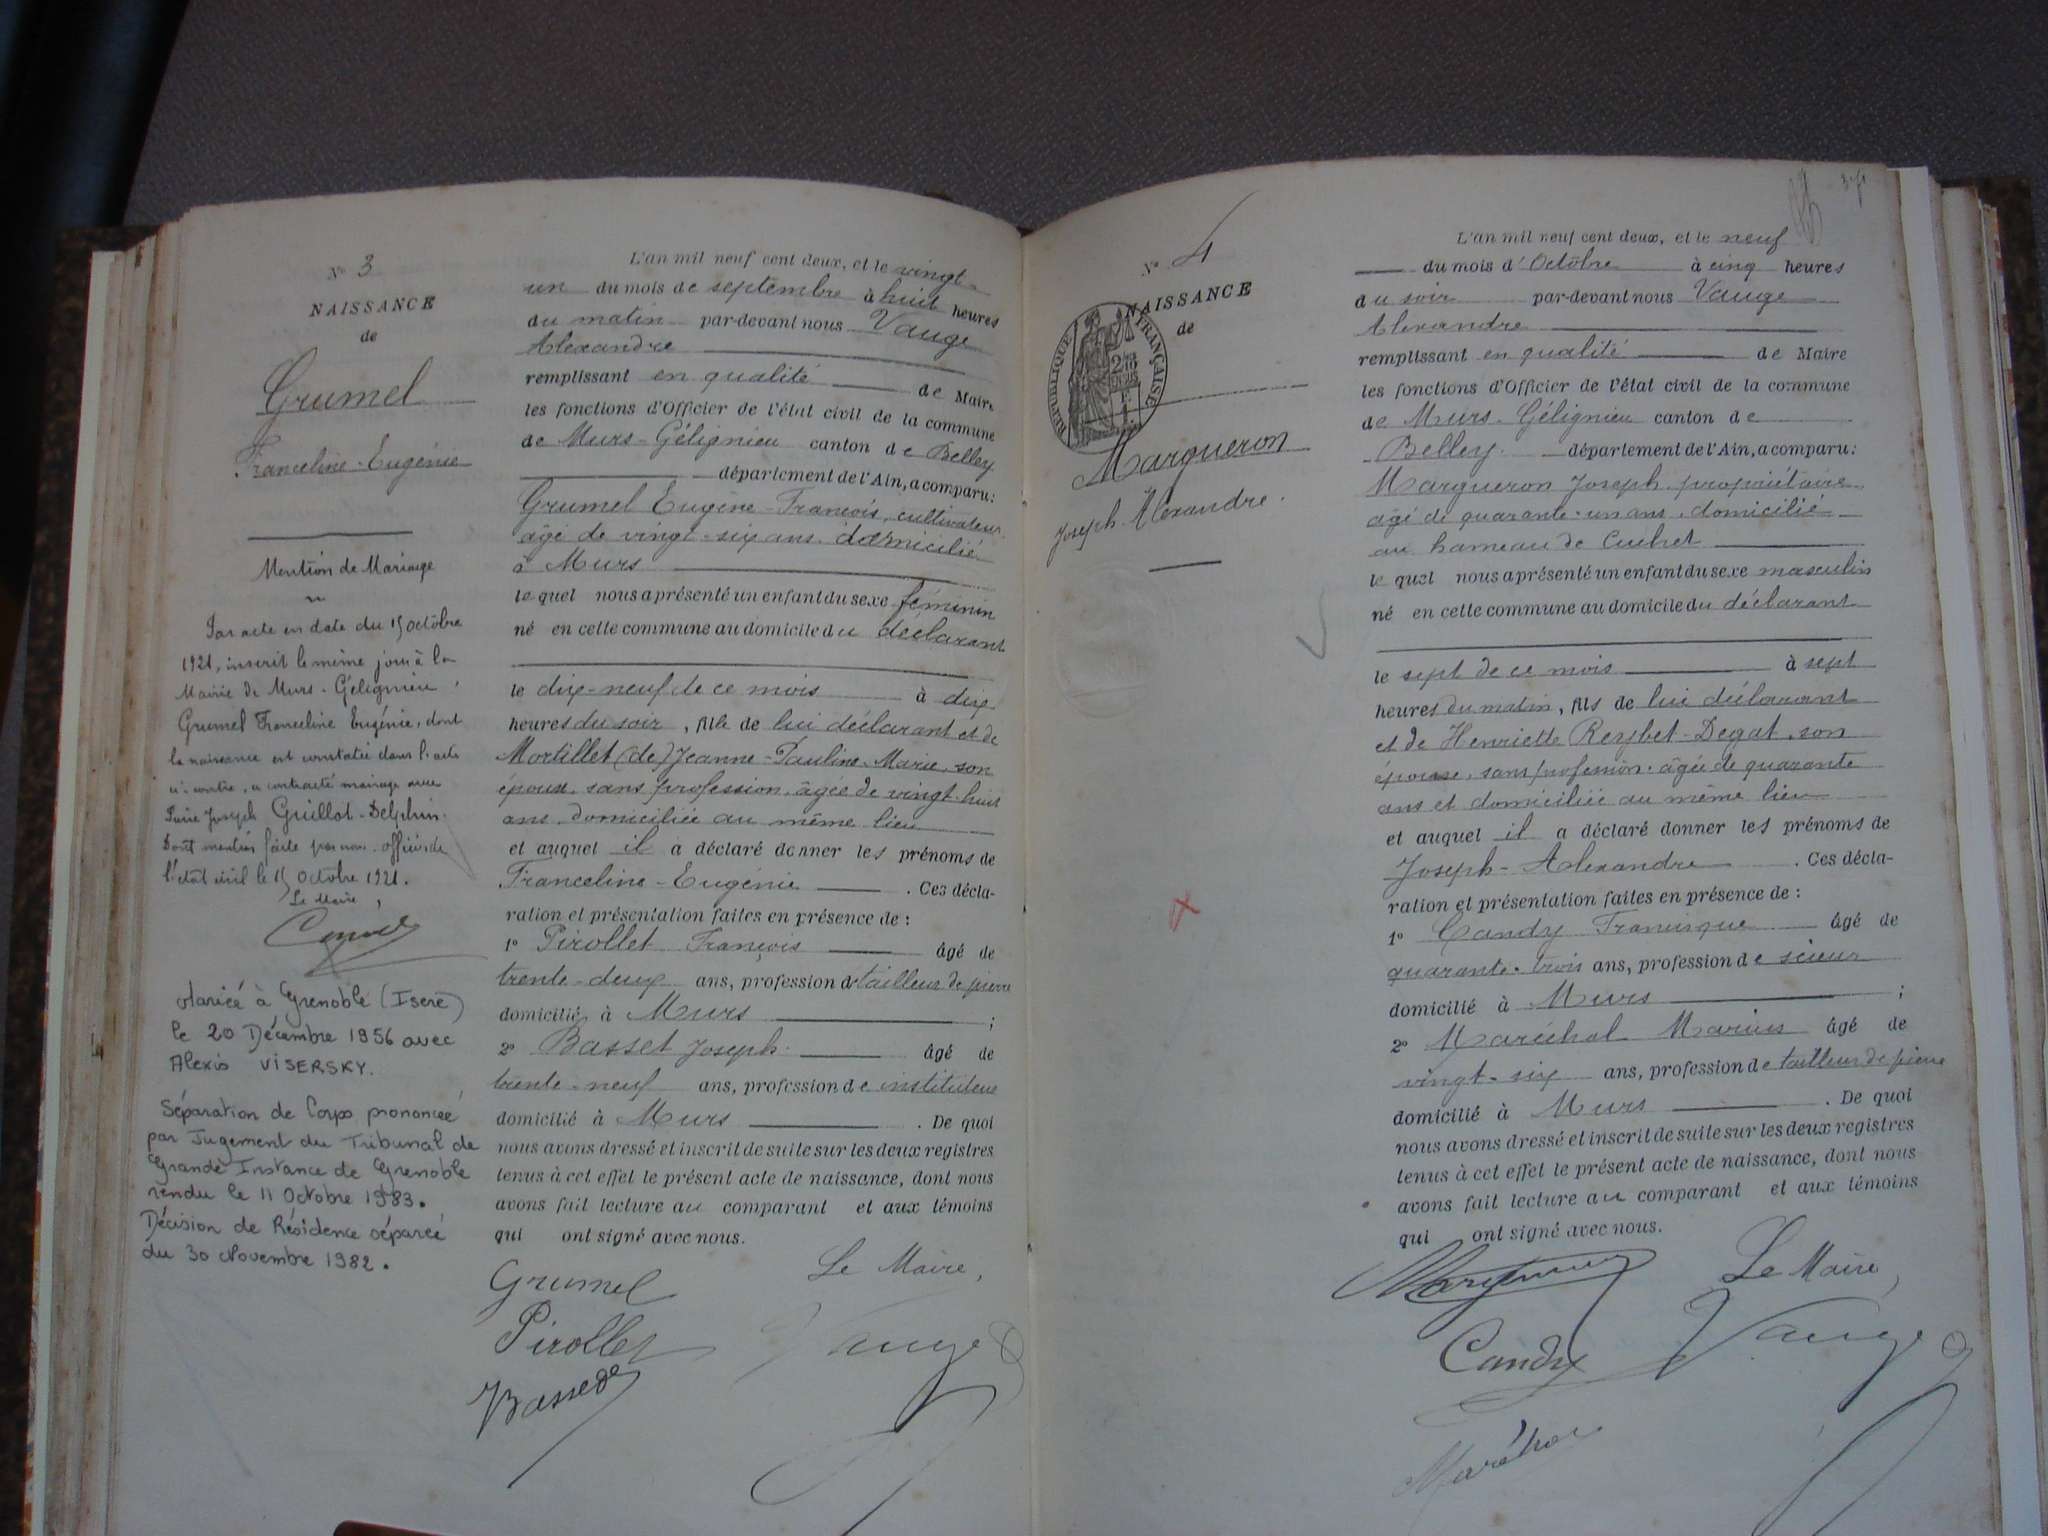 N° 3
NAISSANCE
de
Grumel
Franceline-Eugénie
Mention de Mariage
Par acte en date du 15 octobre
1921, inscrit le même jour à la
Mairie de Murs-Gélignieu,
Grumel Franceline Eugénie, dont
la naissance est constatée dans l'acte
ci-contre, a contracté mariage avec
Joseph Guillot-Delphin.
Dont mention faite par nous officier de
l'état civil le 15 Octobre 1921.
Le Maire,
Marié à Grenoble (Isère)
le 20 Décembre 1956 avec
Alexis VISERSKY.
Séparation de Corps prononcée
par Jugement du Tribunal de
Grande Instance de Grenoble
rendu le 11 Octobre 1983.
Décision de Résidence séparée
du 30 Novembre 1982.
L'an mil neuf cent deux, et le vingt-
un du mois de septembre à huit heures
du matin par-devant nous Vauge
Alexandre
remplissant en qualité de Maire
les fonctions d'Officier de l'état civil de la commune
de Murs-Gélignieu canton de Belley
département de l'Ain, a comparu:
Grumel Eugène-François, cultivateur
âgé de vingt-six ans domicilié
à Murs
le quel nous a présenté un enfant du sexe féminin
né en cette commune au domicile du déclarant
le dix-neuf de ce mois à dix
heures du soir, fille de lui déclarant et de
Mortillet (de) Jeanne-Pauline-Marie, son
épouse, sans profession, âgée de vingt-huit
ans domiciliée au même lieu
et auquel il a déclaré donner les prénoms de
Franceline-Eugénie. Ces décla-
ration et présentation faites en présence de:
1° Pirollet François âgé de
trente-deux ans, profession de tailleur de pierre
domicilié à Murs;
2° Basset Joseph âgé de
trente-neuf ans, profession de instituteur
domicilié à Murs. De quoi
nous avons dressé et inscrit de suite sur les deux registres
tenus à cet effet le présent acte de naissance, dont nous
avons fait lecture au comparant et aux témoins
qui ont signé avec nous.
Grumel Le Maire,
Pirollet Vauge
Basset
N° 4
NAISSANCE
de
RÉPUBLIQUE FRANÇAISE
Margueron
Joseph-Alexandre.
L'an mil neuf cent deux, et le neuf
du mois d'Octobre à cinq heures
du soir par-devant nous Vauge
Alexandre
remplissant en qualité de Maire
les fonctions d'Officier de l'état civil de la commune
de Murs-Gélignieu canton de
Belley. département de l'Ain, a comparu:
Margueron Joseph propriétaire
âgé de quarante-un ans, domicilié
au hameau de Cuchet
le quel nous a présenté un enfant du sexe masculin
né en cette commune au domicile du déclarant
le sept de ce mois à sept
heures du matin, fils de lui déclarant
et de Henriette Reybet-Degat, son
épouse, sans profession, âgée de quarante
ans et domiciliée au même lieu
et auquel il a déclaré donner les prénoms de
Joseph-Alexandre. Ces décla-
ration et présentation faites en présence de:
1° Candy Francisque âgé de
quarante-trois ans, profession de scieur
domicilié à Murs;
2° Maréchal Marius âgé de
vingt-six ans, profession de tailleur de pierre
domicilié à Murs. De quoi
nous avons dressé et inscrit de suite sur les deux registres
tenus à cet effet le présent acte de naissance, dont nous
avons fait lecture au comparant et aux témoins
qui ont signé avec nous.
Margueron Le Maire,
Candy Vauge
Maréchal